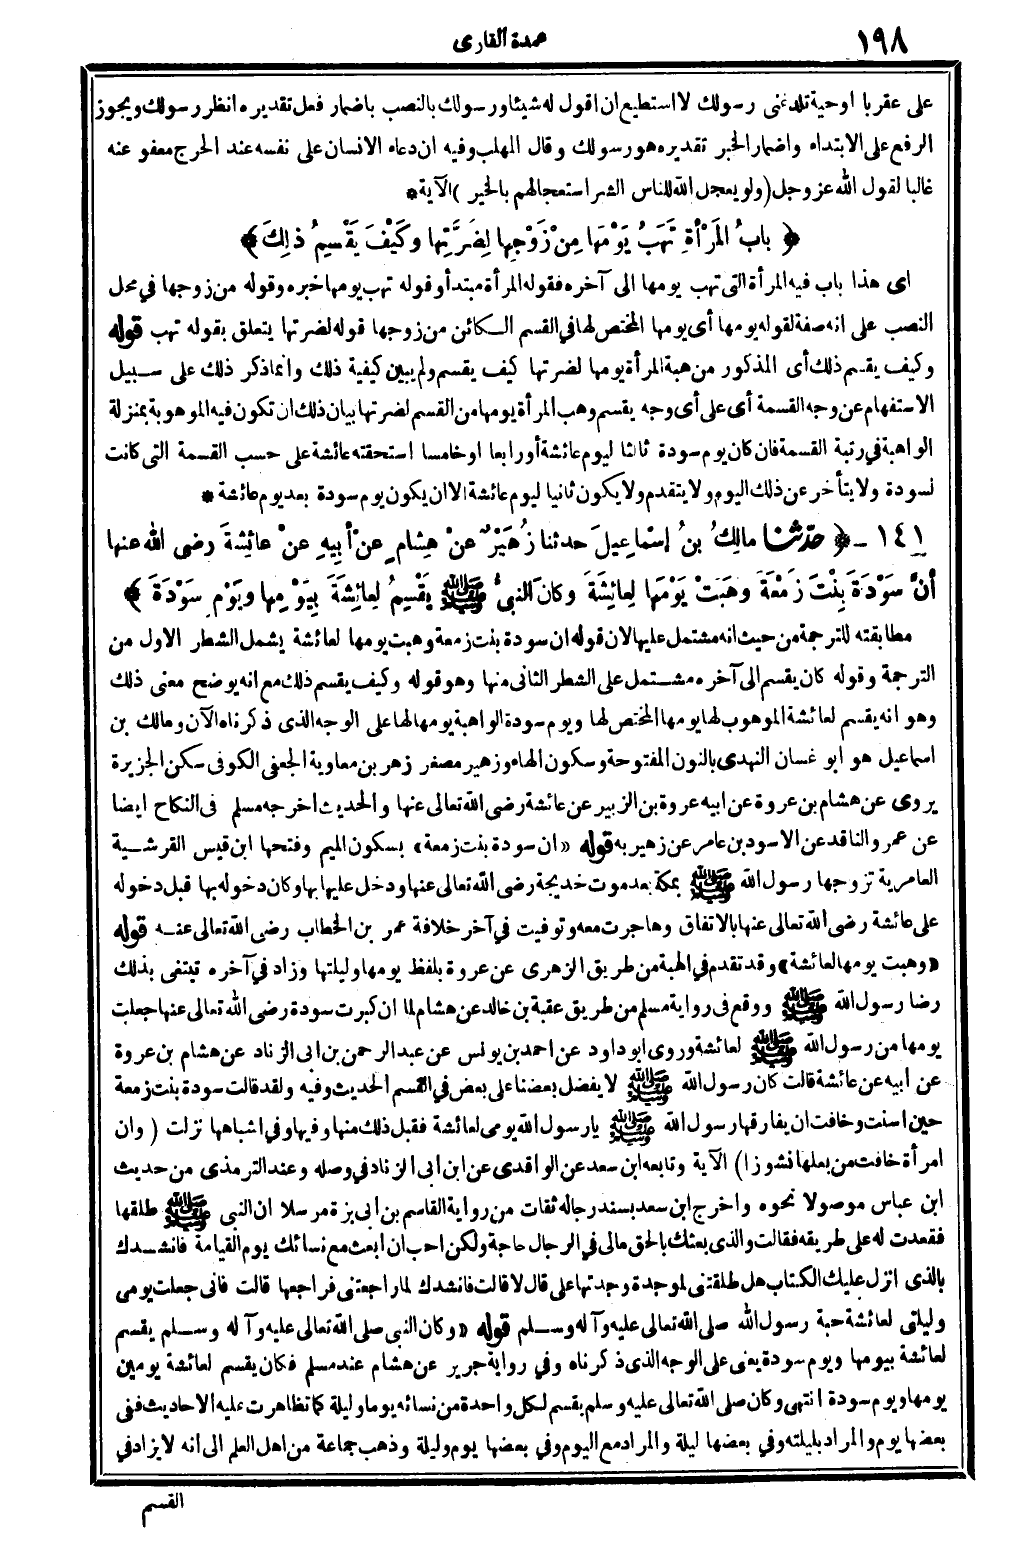 ١٩٨
عمدة القارى
على عقربا او حية تلدغنى رسولك لا استطيع ان اقول له شيئا ورسولك بالنصب باضمار فعل تقديره انظر رسولك ويجوز
الرفع على الابتداء واضمار الخبر تقديره هو رسولك وقال المهلب وفيه ان دعاء الانسان على نفسه عند الحرج معفو عنه
غالبا لقول الله عز وجل (ولو يعجل الله للناس الشر استعجالهم بالخير) الآية *
﴿ بابُ المَرْأةِ تَهَبُ يَوْمَها مِنْ زَوْجِها لِضَرَّتِها وكَيْفَ يَقْسِمُ ذلِكَ ﴾
اى هذا باب فيه المرأة التى تهب يومها الى آخره فقوله المرأة مبتدأ وقوله تهب يومها خبره وقوله من زوجها في محل
النصب على انه صفة لقوله يومها أى يومها المختص لها في القسم الكائن من زوجها قوله لضرتها يتعلق بقوله تهب قوله
وكيف يقسم ذلك أى المذكور من هبة المرأة يومها لضرتها كيف يقسم ولم يبين كيفية ذلك وانما ذكر ذلك على سبيل
الاستفهام عن وجه القسمة أى على أى وجه يقسم وهب المرأة يومها من القسم لضرتها بيان ذلك ان تكون فيه الموهوبة بمنزلة
الواهبة في رتبة القسمة فان كان يوم سودة ثالثا ليوم عائشة أو رابعا او خامسا استحقته عائشة على حسب القسمة التى كانت
لسودة ولا يتأخر عن ذلك اليوم ولا يتقدم ولا يكون ثانيا ليوم عائشة الا ان يكون يوم سودة بعد يوم عائشة *
١٤١ - ﴿ حدّثنا مالِكُ بنُ إسْماعِيلَ حدثنا زُهَيْرٌ عنْ هِشامٍ عنْ أبِيهِ عنْ عائِشةَ رضى الله عنها
أنَّ سَوْدَةَ بِنْتَ زَمْعَةَ وهَبَتْ يَوْمَها لِعائِشَةَ وكانَ النبىُّ ﷺ يَقْسِمُ لِعائِشَةَ بِيَوْمِها ويَوْمِ سَوْدَةَ ﴾
مطابقته للترجمة من حيث انه مشتمل عليها لان قوله ان سودة بنت زمعة وهبت يومها لعائشة يشمل الشطر الاول من
الترجمة وقوله كان يقسم الى آخره مشتمل على الشطر الثانى منها وهو قوله وكيف يقسم ذلك مع انه يوضح معنى ذلك
وهو انه يقسم لعائشة الموهوب لها يومها المختص لها ويوم سودة الواهبة يومها لها على الوجه الذى ذكرناه الآن ومالك بن
اسماعيل هو ابو غسان النهدى بالنون المفتوحة وسكون الهاء وزهير مصغر زهر بن معاوية الجعفى الكوفى سكن الجزيرة
يروى عن هشام بن عروة عن ابيه عروة بن الزبير عن عائشة رضى الله تعالى عنها والحديث اخرجه مسلم فى النكاح ايضا
عن عمرو الناقد عن الاسود بن عامر عن زهير به قوله «ان سودة بنت زمعة» بسكون الميم وفتحها ابن قيس القرشية
العامرية تزوجها رسول الله ﷺ بمكة بعد موت خديجة رضى الله تعالى عنها ودخل عليها بها وكان دخوله بها قبل دخوله
على عائشة رضى الله تعالى عنها بالاتفاق وهاجرت معه وتوفيت في آخر خلافة عمر بن الخطاب رضى الله تعالى عنه قوله
«وهبت يومها لعائشة» وقد تقدم في الهبة من طريق الزهرى عن عروة بلفظ يومها وليلتها وزاد في آخره تبتغى بذلك
رضا رسول الله ﷺ ووقع فى رواية مسلم من طريق عقبة بن خالد عن هشام لما ان كبرت سودة رضى الله تعالى عنها جعلت
يومها من رسول الله ﷺ لعائشة وروى ابو داود عن احمد بن يونس عن عبد الرحمن بن ابى الزناد عن هشام بن عروة
عن أبيه عن عائشة قالت كان رسول الله ﷺ لا يفضل بعضنا على بعض في القسم الحديث وفيه ولقد قالت سودة بنت زمعة
حين اسنت وخافت ان يفارقها رسول الله ﷺ يا رسول الله يومى لعائشة فقبل ذلك منها وفيها وفي اشباهها نزلت (وان
امرأة خافت من بعلها نشوزا) الآية وتابعه ابن سعد عن الواقدى عن ابن ابى الزناد في وصله وعند الترمذى من حديث
ابن عباس موصولا نحوه واخرج ابن سعد بسند رجاله ثقات من رواية القاسم بن ابى بزة مرسلا ان النبى ﷺ طلقها
فقعدت له على طريقه فقالت والذى بعثك بالحق مالى في الرجال حاجة ولكن احب ان أبعث مع نسائك يوم القيامة فانشدك
بالذى انزل عليك الكتاب هل طلقتنى لموجدة وجدتها على قال لا قالت فانشدك لما راجعتنى فراجعها قالت فانى جعلت يومى
وليلتى لعائشة حبة رسول الله صلى الله تعالى عليه وآله وسلم قوله «وكان النبى صلى الله تعالى عليه وآله وسلم يقسم
لعائشة بيومها ويوم سودة يعنى على الوجه الذى ذكرناه وفي رواية جرير عن هشام عند مسلم فكان يقسم لعائشة يومين
يومها ويوم سودة انتهى وكان صلى الله تعالى عليه وسلم يقسم لكل واحدة من نسائه يوما وليلة كما تظاهرت عليه الأحاديث ففى
بعضها يوم والمراد بليلته وفي بعضها ليلة والمراد مع اليوم وفي بعضها يوم وليلة وذهب جماعة من اهل العلم الى انه لا يزاد في
القسم